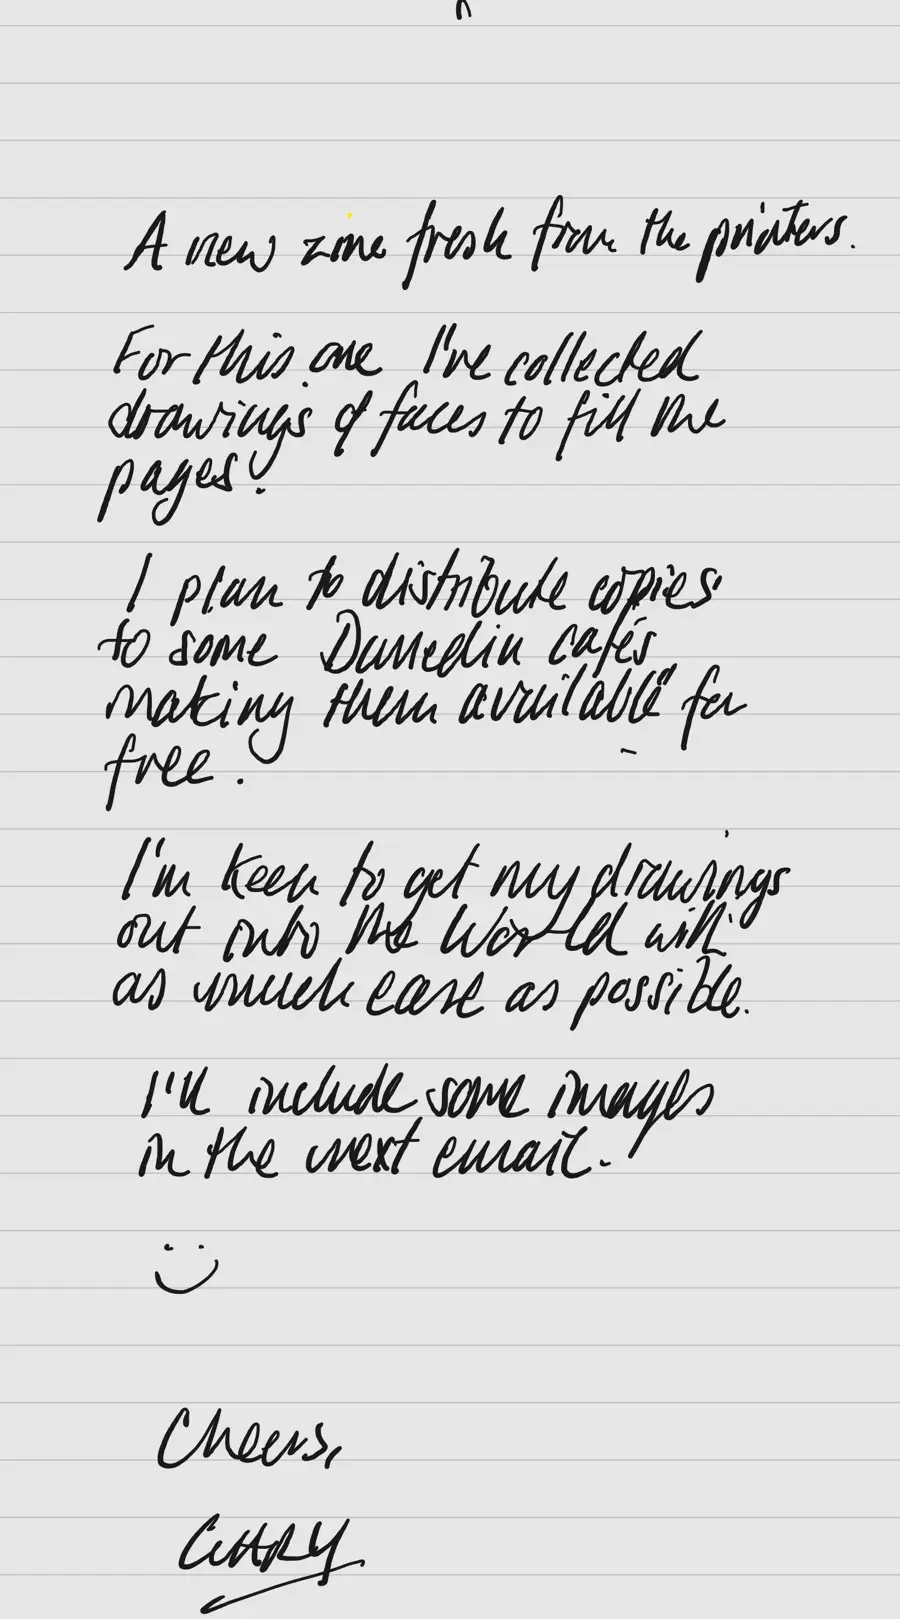 A new zine fresh from the printers.
For this one I've collected
drawings of faces to fill the
pages.
I plan to distribute copies
to some Dunedin cafés
making them available for
free.
I'm keen to get my drawings
out into the world with
as much ease as possible.
I'll include some images
in the next email.
Cheers,